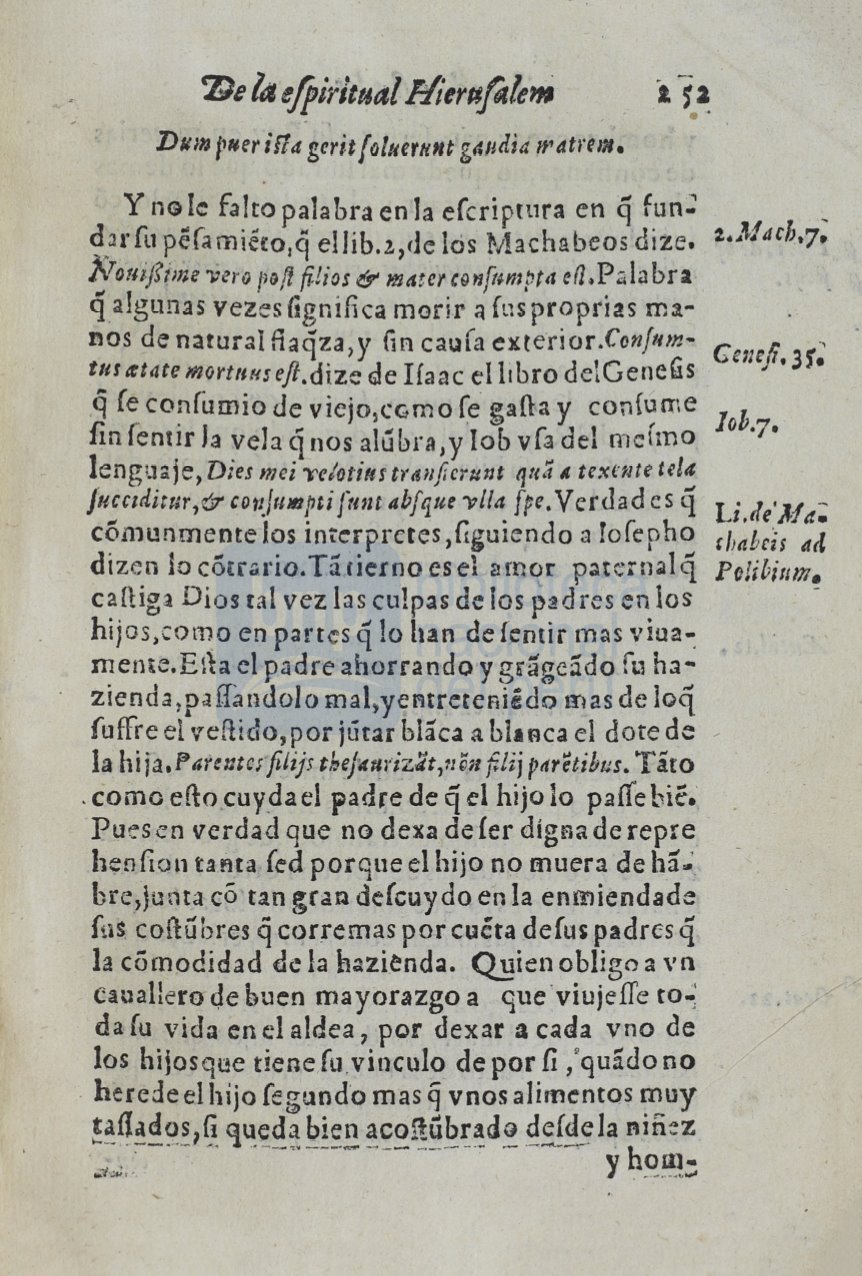 De la eſpiritual Hieruſalem 252
Dum puer iſta gerit ſoluerunt gaudia matrem.
Y no le falto palabra en la eſcriptura en q̃ fun-
dar ſu pẽſamiẽto, q̃ el lib.2, de los Machabeos dize.
2.Mach.7.
Nouiſſime vero poſt filios & mater conſumpta eſt. Palabra
q̃ algunas vezes ſignifica morir a ſus proprias ma-
nos de natural flaq̃za, y ſin cauſa exterior. Conſum-
Geneſi.35.
tus ætate mortuus eſt. dize de Iſaac el libro del Geneſis
q̃ ſe conſumio de viejo, como ſe gaſta y conſume
Iob.7.
ſin ſentir la vela q̃ nos alũbra, y Iob vſa del meſmo
lenguaje, Dies mei velotius tranſierunt quã a texente tela
ſucciditur, & conſumpti ſunt abſque vlla ſpe. Verdad es q̃
Li.de Ma-
cõmunmente los interpretes, ſiguiendo a Ioſepho
chabeis ad
dizen lo cõtrario. Tã tierno es el amor paternal q̃
Polibium.
caſtiga Dios tal vez las culpas de los padres en los
hijos, como en partes q̃ lo han de ſentir mas viua-
mente. Eſta el padre ahorrando y grãgeãdo ſu ha-
zienda, paſſandolo mal, y entreteniẽdo mas de loq̃
ſuffre el veſtido, por jũtar blãca a blanca el dote de
la hija. Parentes filijs theſaurizãt, nõn filij parẽtibus. Tãto
como eſto cuyda el padre de q̃ el hijo lo paſſe biẽ.
Pues en verdad que no dexa de ſer digna de repre
henſion tanta ſed porque el hijo no muera de hã-
bre, junta cõ tan gran deſcuydo en la enmienda de
ſus coſtũbres q̃ corre mas por cuẽta de ſus padres q̃
la cõmodidad de la hazienda. Quien obligo a vn
cauallero de buen mayorazgo a que viujeſſe to-
da ſu vida en el aldea, por dexar a cada vno de
los hijos que tiene ſu vinculo de por ſi, quãdo no
herede el hijo ſegundo mas q̃ vnos alimentos muy
taſſados, ſi queda bien acoſtũbrado deſde la niñez
y hom-